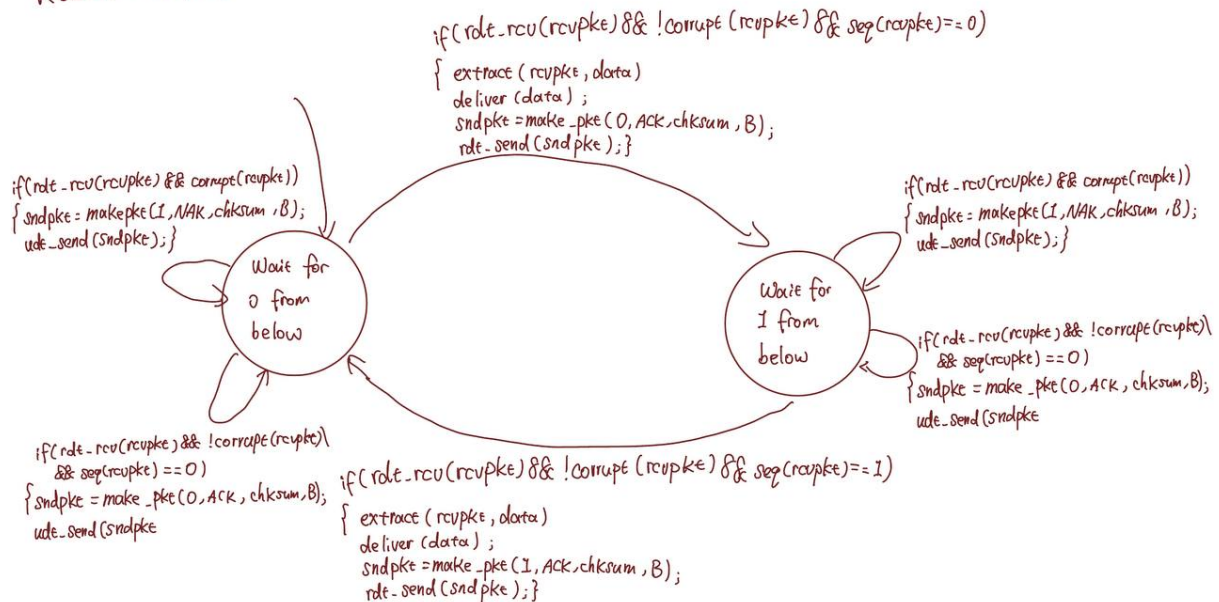 if(rdt_rcv(rcvpkt) && !corrupt(rcvpkt) && seq(rcvpkt)==0)
{ extract(rcvpkt, data)
deliver(data);
sndpkt = make_pkt(0, ACK, chksum, B);
rdt_send(sndpkt);}
if(rdt_rcv(rcvpkt) && corrupt(rcvpkt))
{ sndpkt = makepkt(1, NAK, chksum, B);
udt_send(sndpkt);}
Wait for
0 from
below
if(rdt_rcv(rcvpkt) && corrupt(rcvpkt))
{ sndpkt = makepkt(1, NAK, chksum, B);
udt_send(sndpkt);}
Wait for
1 from
below
if(rdt_rcv(rcvpkt) && !corrupt(rcvpkt)\
&& seq(rcvpkt) ==0)
{ sndpkt = make_pkt(0, ACK, chksum, B);
udt_send(sndpkt
if(rdt_rcv(rcvpkt) && !corrupt(rcvpkt)\
&& seq(rcvpkt) ==0)
{ sndpkt = make_pkt(0, ACK, chksum, B);
udt_send(sndpkt
if(rdt_rcv(rcvpkt) && !corrupt(rcvpkt) && seq(rcvpkt)==1)
{ extract(rcvpkt, data)
deliver(data);
sndpkt = make_pkt(1, ACK, chksum, B);
rdt_send(sndpkt);}